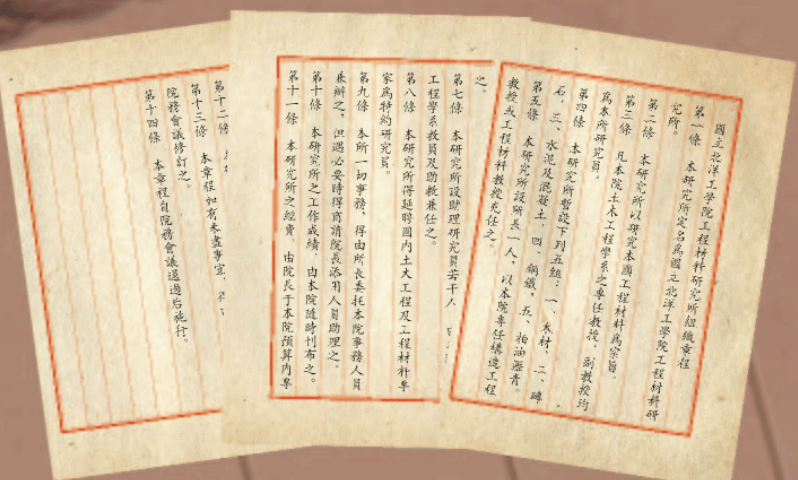 國立北洋工學院工程材料研究所組織章程
第一條　本研究所定名爲國立北洋工學院工程材料研
究所。
第二條　本研究所以研究本國工程材料爲宗旨。
第三條　凡本院土木工程學系之專任教授、副教授均
爲本所研究員。
第四條　本研究所暫設下列五組：一、木材，二、磚
石，三、水泥及混凝土，四、鋼鐵，五、柏油瀝青。
第五條　本研究所設所長一人，以本院專任構造工程
教授或工程材料教授充任之。
之。
第七條　本研究所設助理研究員若干人
工程學系教員及助教兼任之。
第八條　本研究所得延聘國内土木工程及工程材料專
家爲特約研究員。
第九條　本所一切事務，得由所長委托本院事務人員
兼辦之，但遇必要時得商請院長添用人員助理之。
第十條　本研究所之工作成績，由本院隨時刊布之。
第十一條　本研究所之經費，由院長于本院預算内專
第十二條
第十三條　本章程如有未盡事宜，
院務會議修訂之。
第十四條　本章程自院務會議通過后施行。